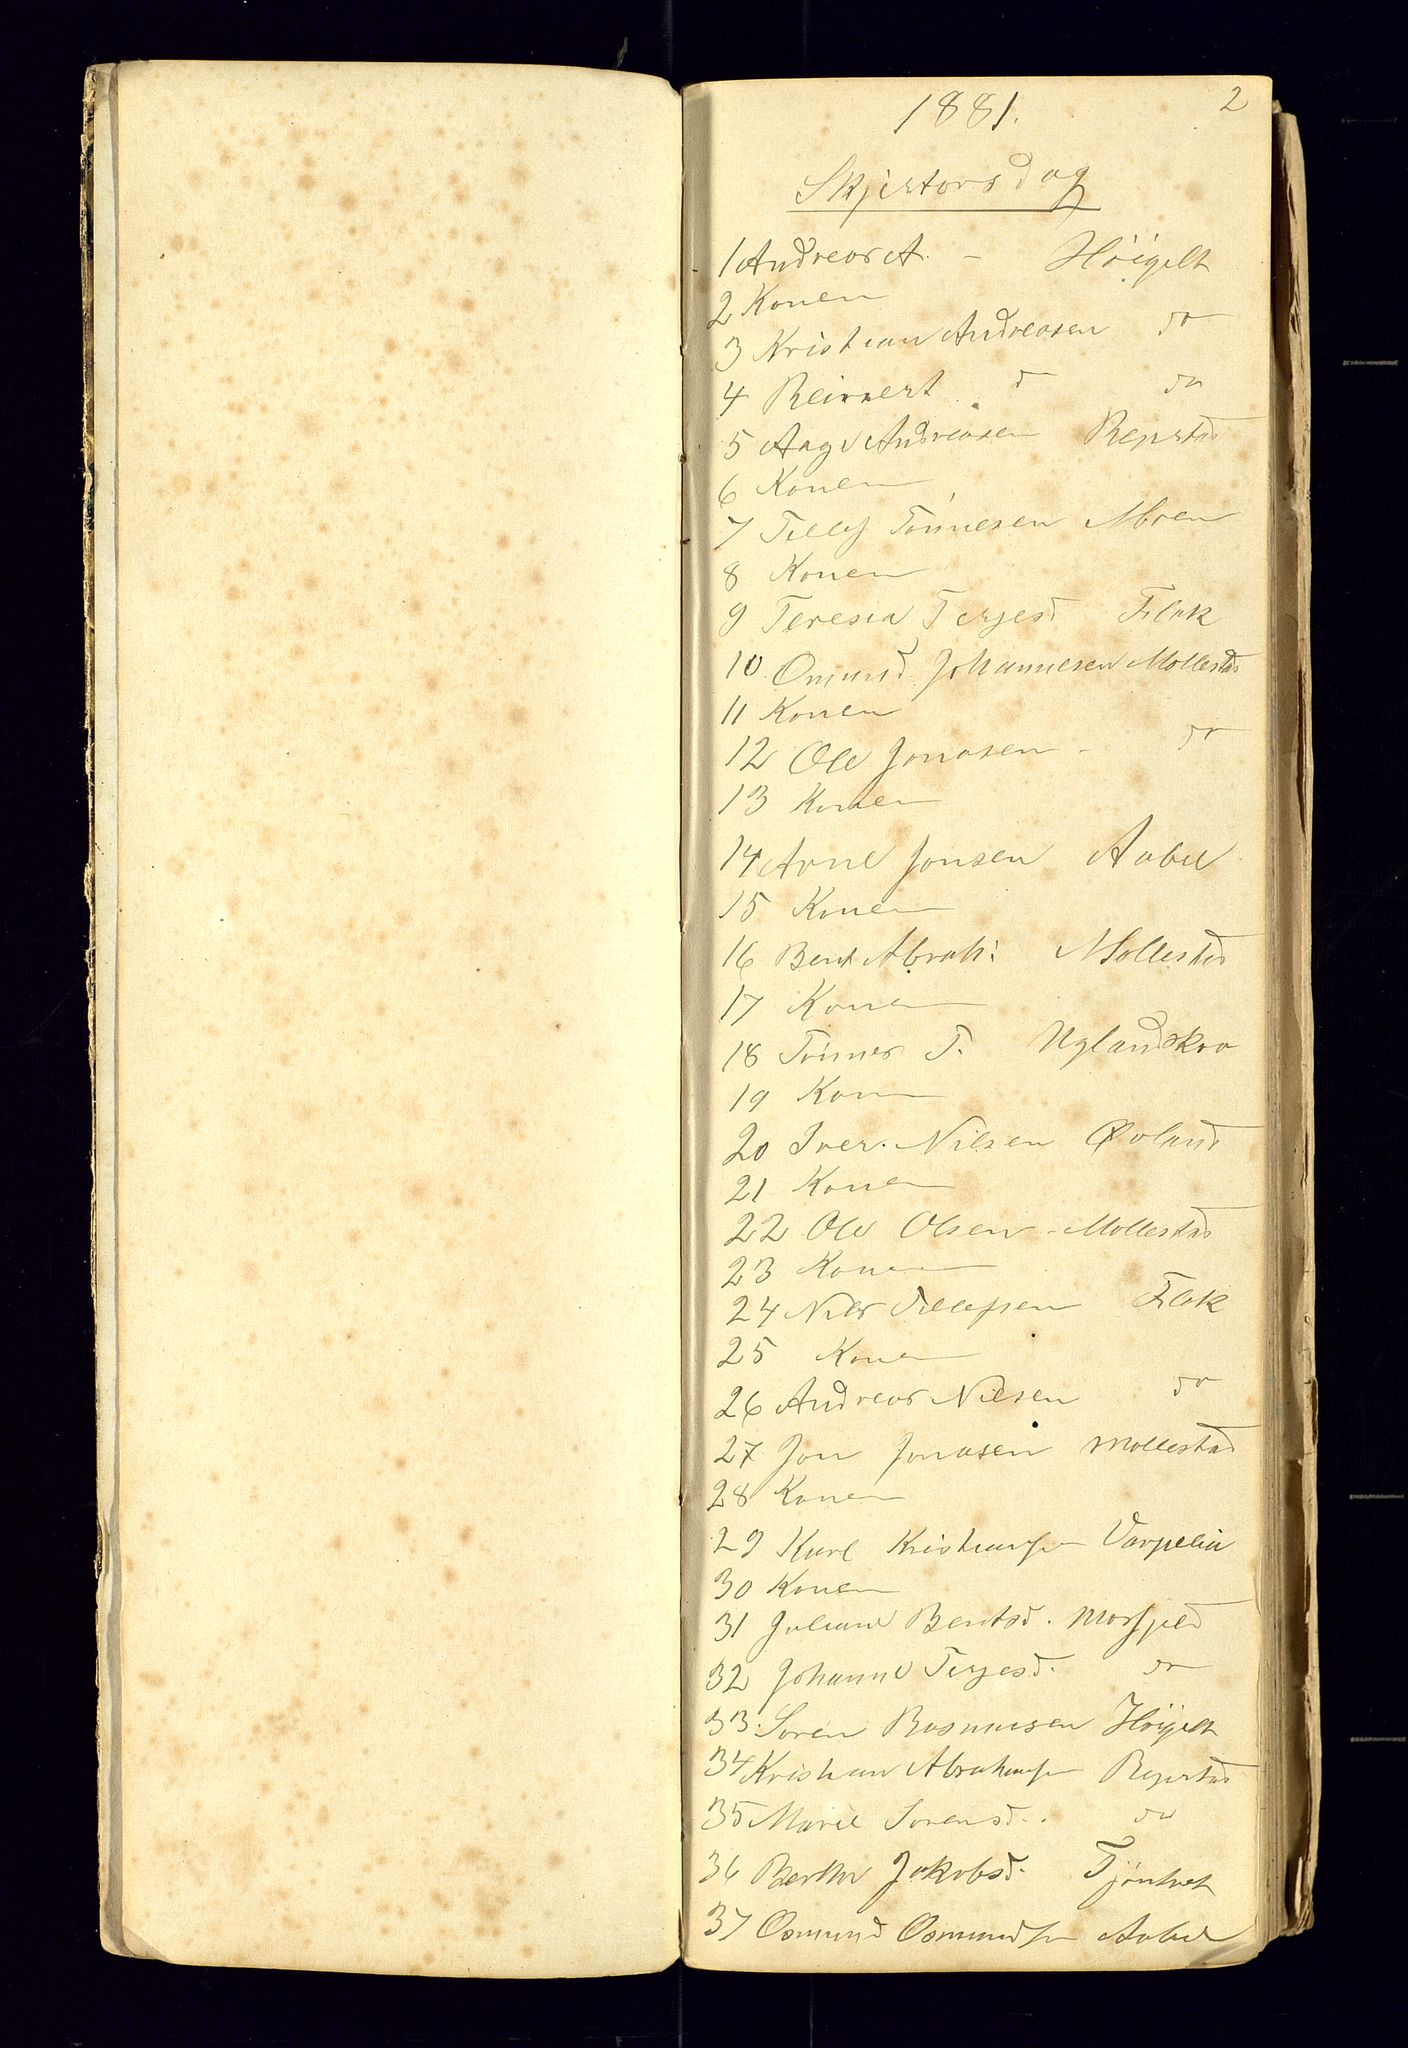 2
1881.
Skjertorsdag
1 Andreas A. - Høigilt
2 Konen
3 Kristian Andreasen do
4 Reinert d do
5 Aage Andreasen Repstad
6 Konen
7 Tellef Tønnesen Moen
8 Konen
9 Teresia Terjesd Flak
10 Omund Johannesen Mollestad
11 Konen
12 Ole Jonasen - do
13 Konen
14 Arne Jonsen Aabel
15 Konen
16 Bent Abrah: Mollestad
17 Konen
18 Tønnes T. Uglandskro
19 Konen
20 Iver Nilsen Øvland
21 Konen
22 Ole Olsen - Mollestad
23 Konen
24 Nils Tellefsen Flak
25 Konen
26 Andreas Nilsen do
27 Jon Jonasen Mollestad
28 Konen
29 Karl Kristiansen Varpelia
30 Konen
31 Juliane Bentsd. Mosfjeld
32 Johanne Terjesd. do
33. Søren Rasmusen Høigilt
34 Kristian Abrahamsen Repstad
35 Marie Sørensd. do
36 Berthe Jakobsd. Tjøntvet
37 Osmund Osmundsen Aabel